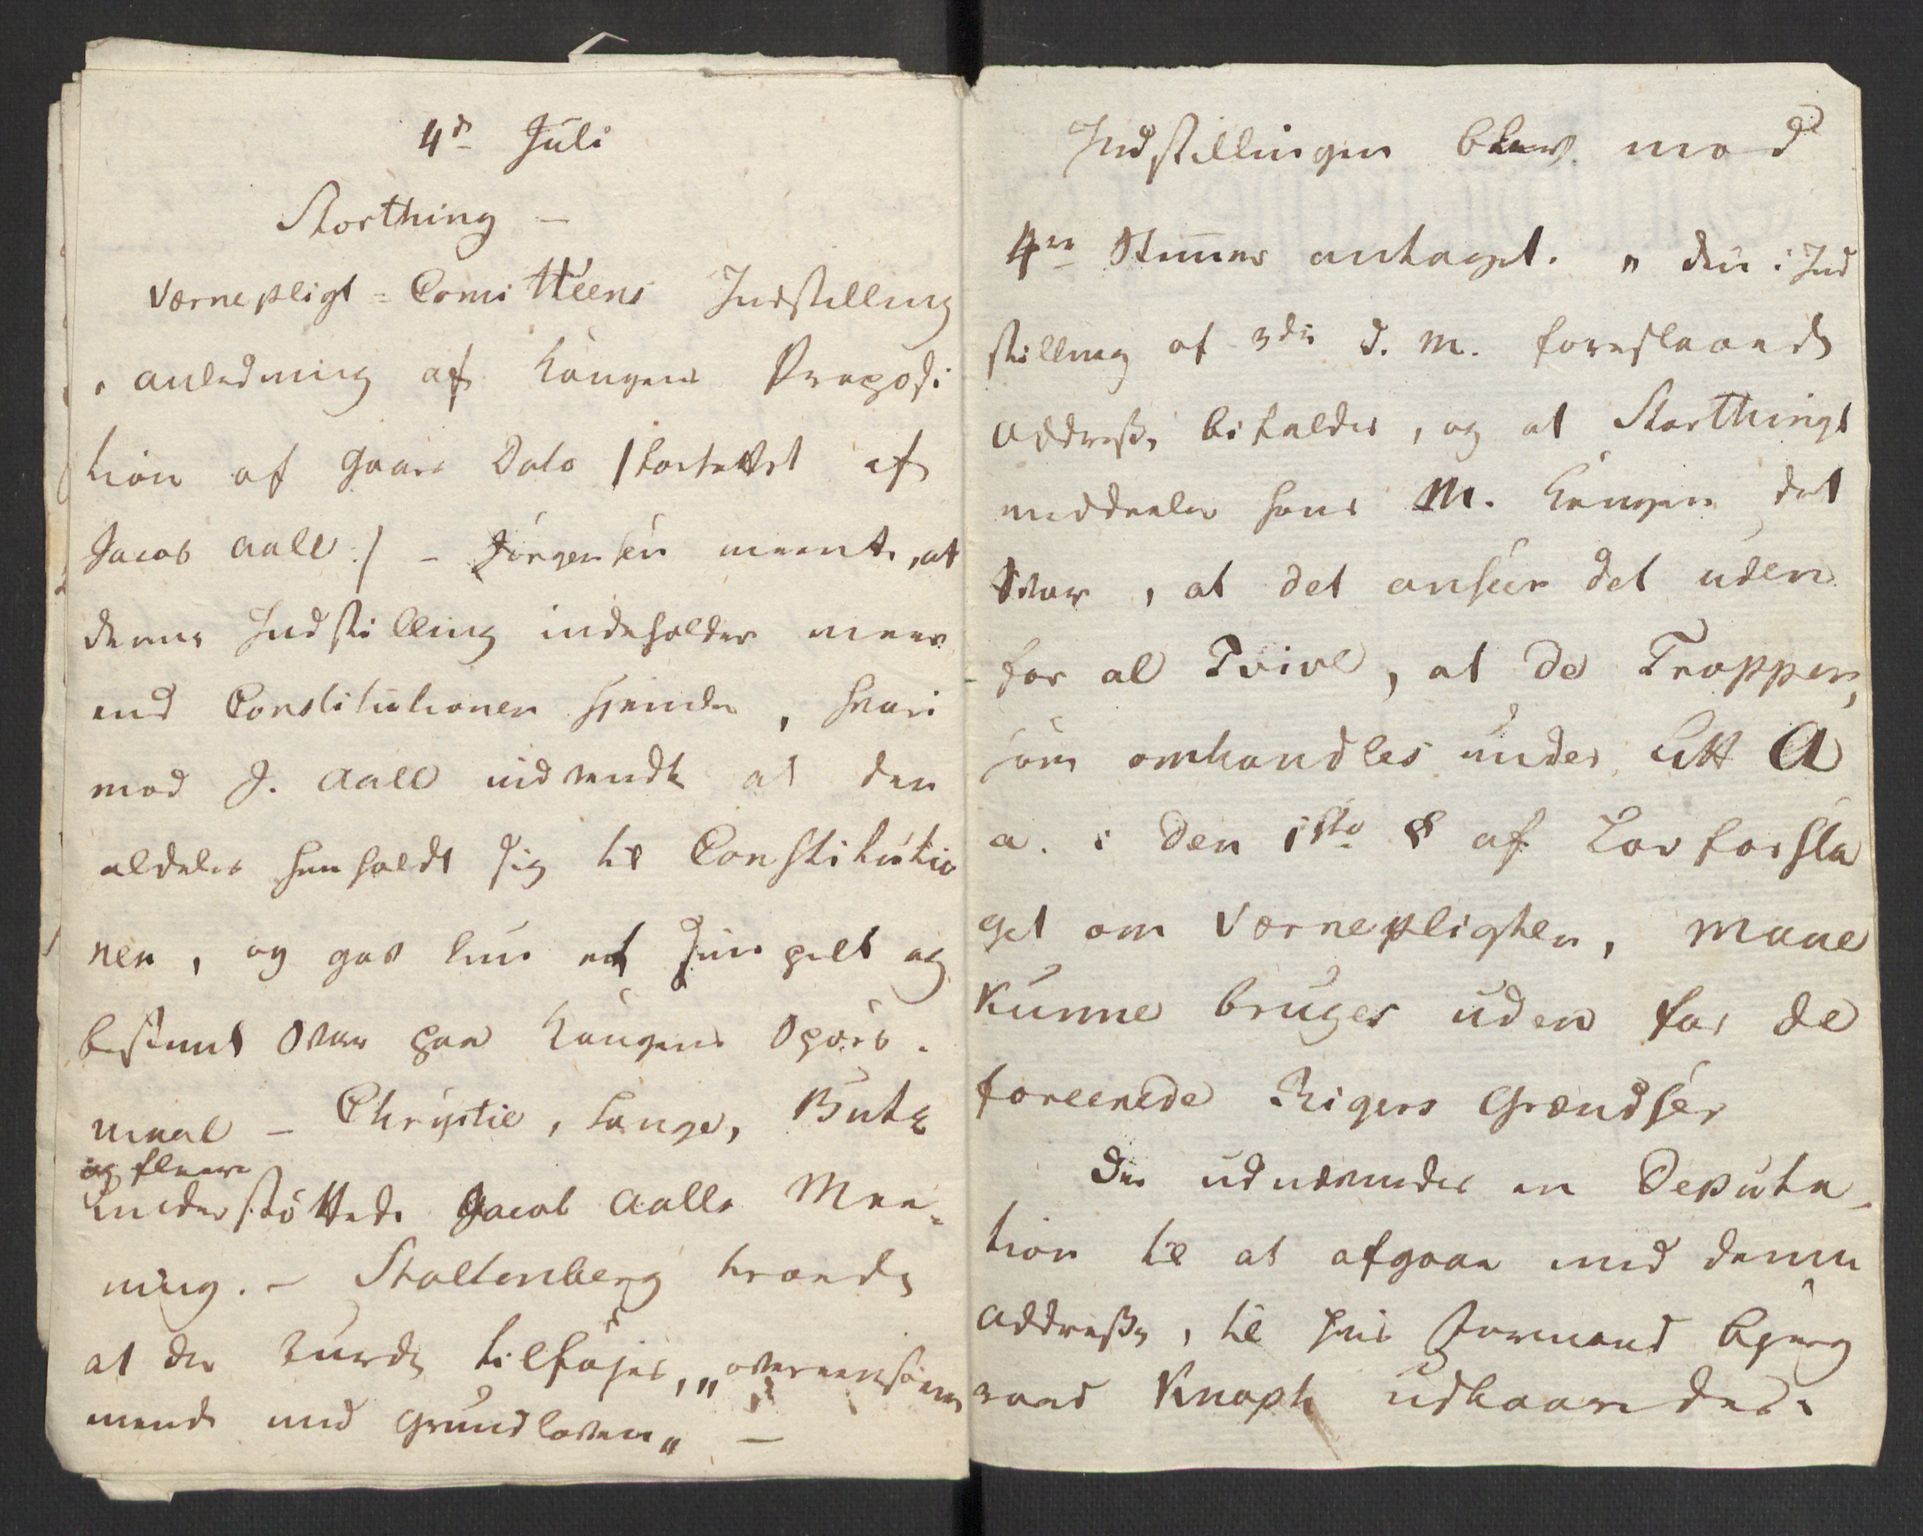 4de Juli
Storthing –
Værnepligt = Comitteens Indstilling
i anledning af Kongens Proposi
tion af Gaars Dato /forfattet af
Jacob Aall:/ – Jörgensen meente, at
denne Indstilling indeholder meer
end Constitutionen hjemler, hvori
mod J. Aall indvendte at den
aldeles henholdt sig til Constitutio
nen, og gav kun et simpelt og
bestemt Svar paa Kongens Spörs-
maal – Christie, Lange, Bütz
og fleere
understöttede Jacob Aalls Mee-
ning. – Stoltenberg troede
at der burde tilföjes, „overeenstem
mende med Grundloven„ –
Indstillingen blev mod
4re Stemmer antaget. „ den i Ind
stilling af 3die d. M. foreslaaede
Addresse bifaldes, og at Storthinget
meddeeler Hans M. Kongen det
Svar, at det anseer det uden
for al Tvivl, at de Tropper,
som omhandles under Litt A
a. i den 1ste § af Lovforsla
get om Værnepligten, maae
kunne bruges uden for de
foreenede Rigers Grændser
Der udnævnedes en Deputa-
tion til at afgaae med denne
Addresse, til hvis Formand Bjerg
raad Knoph udkaaredes.